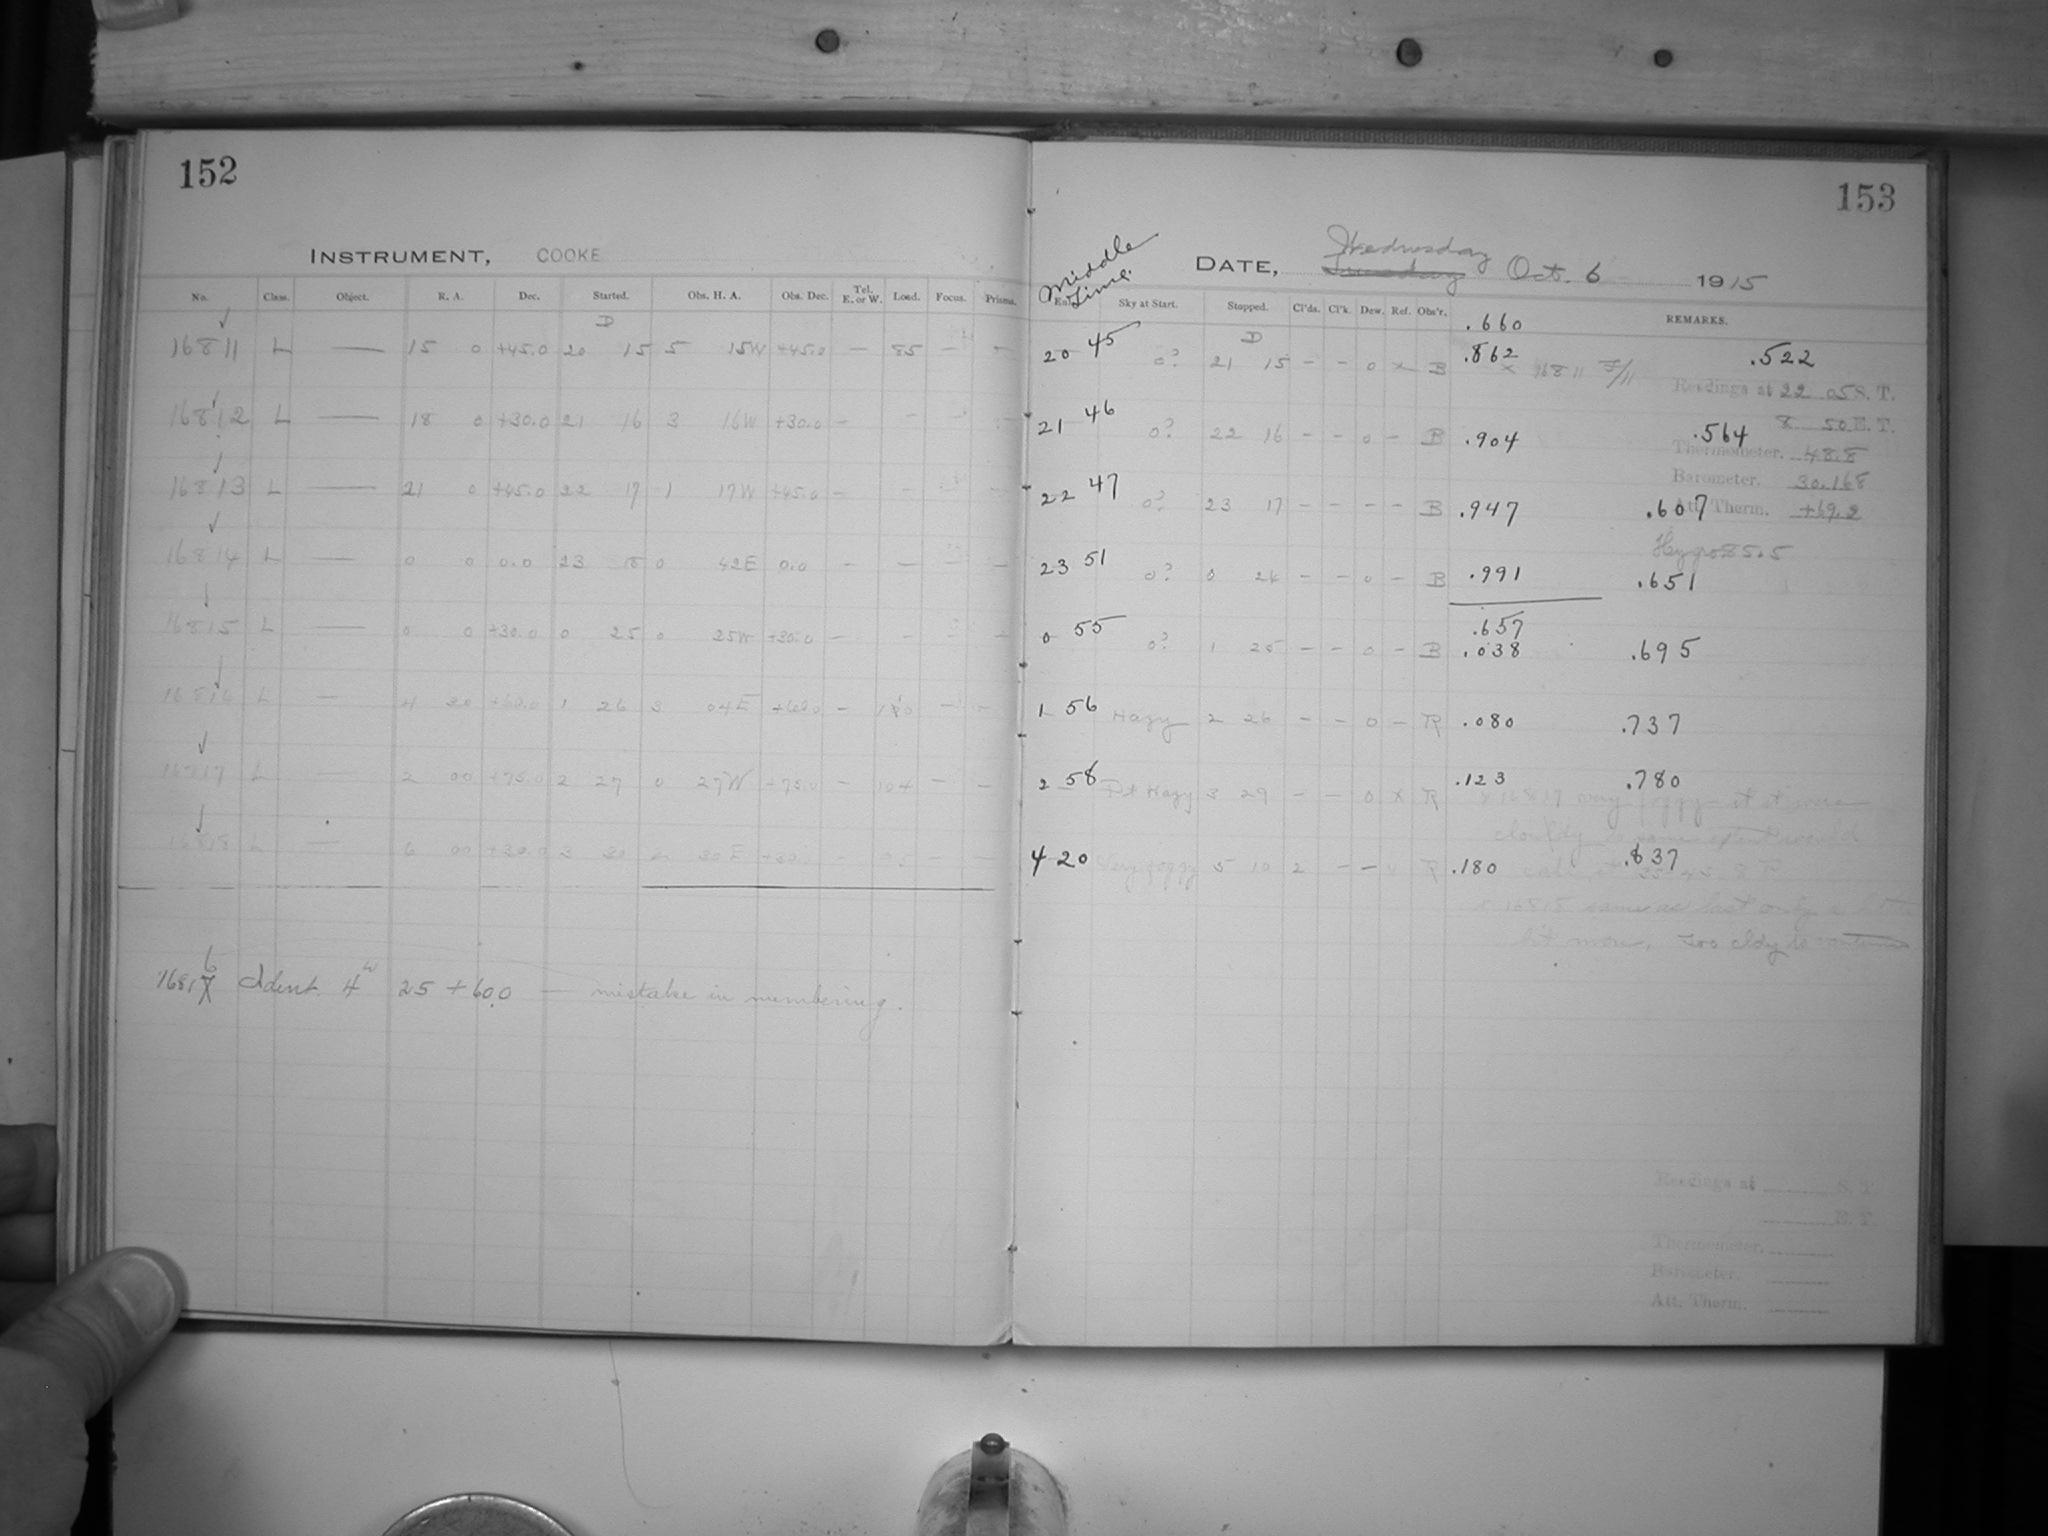 152
INSTRUMENT, COOKE
No. Class. Object. R. A. Dec. Started. Obs. H. A. Obs. Dec. Tel. E. or W. Load. Focus. Prisms.
D
16811 L — 15 0 +45.0 20 15 5 15W +45.0 — 85 —
16812 L — 18 0 +30.0 21 16 3 16W +30.0 — -
16813 L — 21 0 +45.0 22 17 1 17W +45.0 — - -
16814 L — 0 0 0.0 23 18 0 42E 0.0 - — — —
16815 L — 0 0 +30.0 0 25 0 25W +30.0 — -
16816 L — 4 30 +60.0 1 26 3 04E +60.0 - — -
16817 L — 2 00 +75.0 2 27 0 27W +75.0 - 104 — —
16818 L — 6 00 +30.0 3 30 2 30E +30.
16816 Ident. 4 W 25 +60.0 — mistake in numbering.
153
Middle Time.
DATE, Wednesday Tuesday Oct. 6 1915
Sky at Start. Stopped. Cl'ds. Cl'k. Dew. Ref. Obs'r. REMARKS.
.660
D
20 45 0? 21 15 - - 0 x B .862 x 16811 F/11 .522
Readings at 22 05 S. T.
8 50 E. T.
21 46 0? 22 16 - - 0 - B .904 .564
Thermometer. 48.8
Barometer. 30.168
22 47 0? 23 17 - - - - B .947 .607
Att. Therm. +69.2
Hygro 85.5
23 51 0? 0 24 - - 0 - B .991 .651
.657
0 55 0? 1 25 - - 0 - B .038 .695
1 56 Hazy 2 26 - - 0 - R .080 .737
2 58 Pt Hazy 3 29 - - 0 x R .123 .780
x 16817 very foggy if it were
cloudy to some extent would
4 20 Very foggy 5 10 2 - - R .180 .837
x 16818 same as last only a little
bit more, Too cldy to continue
Readings at S. T.
E. T.
Thermometer.
Barometer.
Att. Therm.